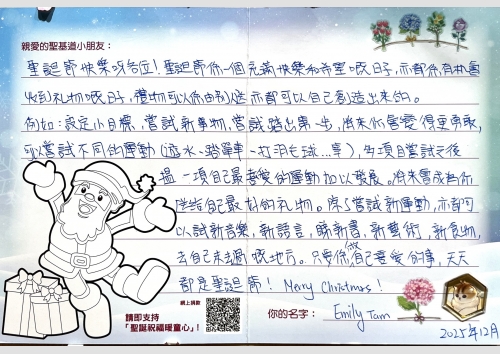 親愛的聖基道小朋友：
聖誕節快樂呀各位！聖誕節係一個充滿快樂和希望嘅日子，亦都係有機會
收到礼物嘅日子，禮物可以係由別人送亦都可以自己創造出來的。
例如：設定小目標，嘗試新事物，嘗試踏出第一步，將來你會變得更勇敢，
可以嘗試不同的運動（遊水、踏單車、打羽毛球...等），每項目嘗試之後
搵一項自己最喜愛的運動加以發展。將來會成為你
送給自己最好的礼物。除了嘗試新運動，亦都可
以試新音樂，新語言，睇新書，新藝術，新食物，
去自己未去過嘅地方。只要你做自己喜愛的事，天天
都是聖誕節！Merry Christmas！
網上捐款
請即支持
「聖誕祝福暖童心」！
你的名字：Emily Tam
2025年12月